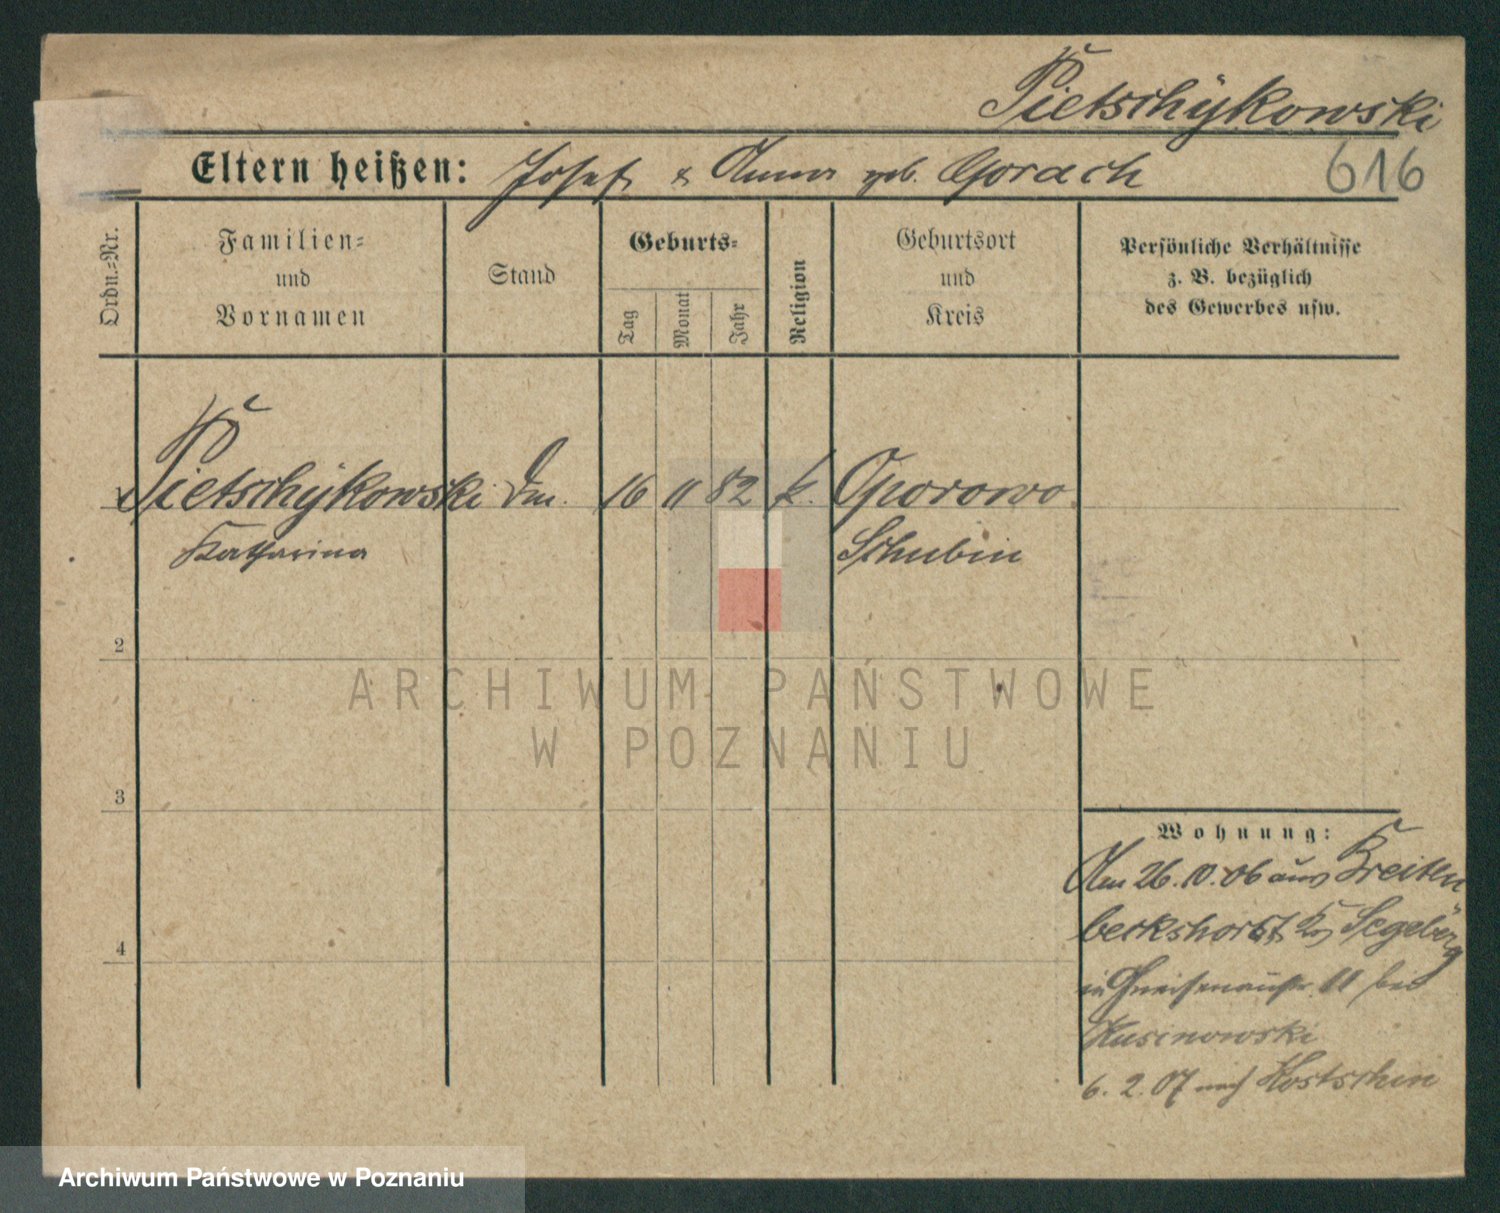 Pietschÿkowski
Eltern heißen: Josef & Anna geb. Gorach
616
Ordn.-Nr.
Familien-
und
Vornamen
Stand
Geburts-
Tag
Monat
Jahr
Religion
Geburtsort
und
Kreis
Persönliche Verhältnisse
z. B. bezüglich
des Gewerbes usw.
1 Pietschÿkowski Dm. 16 11 82 k. Oporowo
Katharina Schubin
2
3
4
Wohnung:
Am 26.10.06 aus
Segeberg
in Gneisenaustr. 11 bei
Kusinowski
6. 2. 07 nach Kostschin
ARCHIWUM PAŃSTWOWE
W POZNANIU
Archiwum Państwowe w Poznaniu